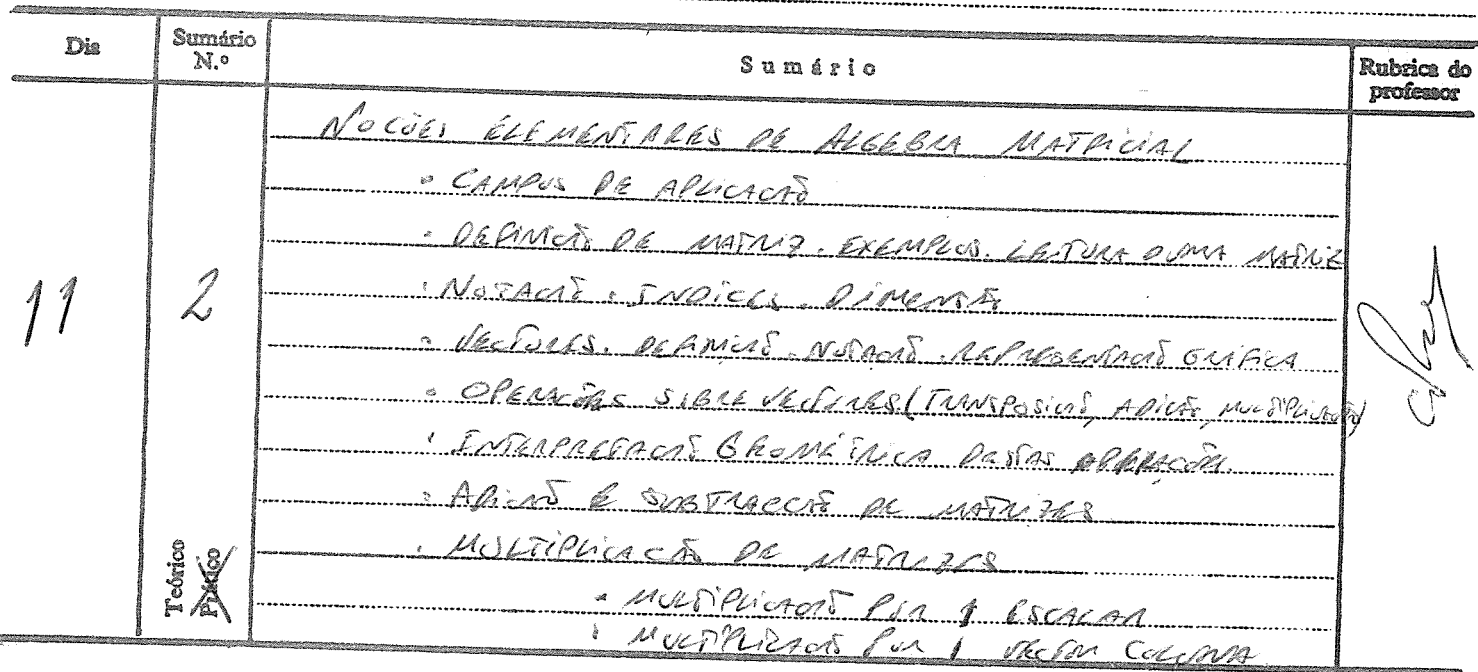 Dia
Sumário N.º
Sumário
Rubrica do professor
11
2
Teórico
Prático
NOÇÕES ELEMENTARES DE ALGEBRA MATRICIAL
• CAMPOS DE APLICAÇÃO
• DEFINIÇÃO DE MATRIZ. EXEMPLOS. LEITURA DUMA MATRIZ
• NOTAÇÃO. INDICES. DIMENSÃO
• VECTORES. DEFINIÇÃO. NOTAÇÃO. REPRESENTAÇÃO GRÁFICA
• OPERAÇÕES SOBRE VECTORES (TRANSPOSIÇÃO, ADIÇÃO, MULTIPLICAÇÃO)
• INTERPRETAÇÃO GEOMÉTRICA DESTAS OPERAÇÕES.
• ADIÇÃO E SUBTRACÇÃO DE MATRIZES
• MULTIPLICAÇÃO DE MATRIZES
• MULTIPLICAÇÃO POR 1 ESCALAR
• MULTIPLICAÇÃO POR 1 VECTOR COLUNA